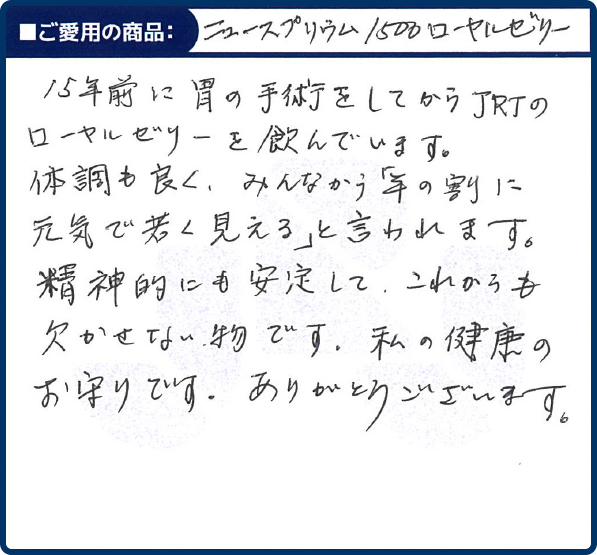 ■ご愛用の商品： ニュースプリウム1500ローヤルゼリー
15年前に胃の手術をしてからJRJの
ローヤルゼリーを飲んでいます。
体調も良く、みんなから「年の割に
元気で若く見える」と言われます。
精神的にも安定して、これからも
欠かせない物です。私の健康の
お守りです。ありがとうございます。